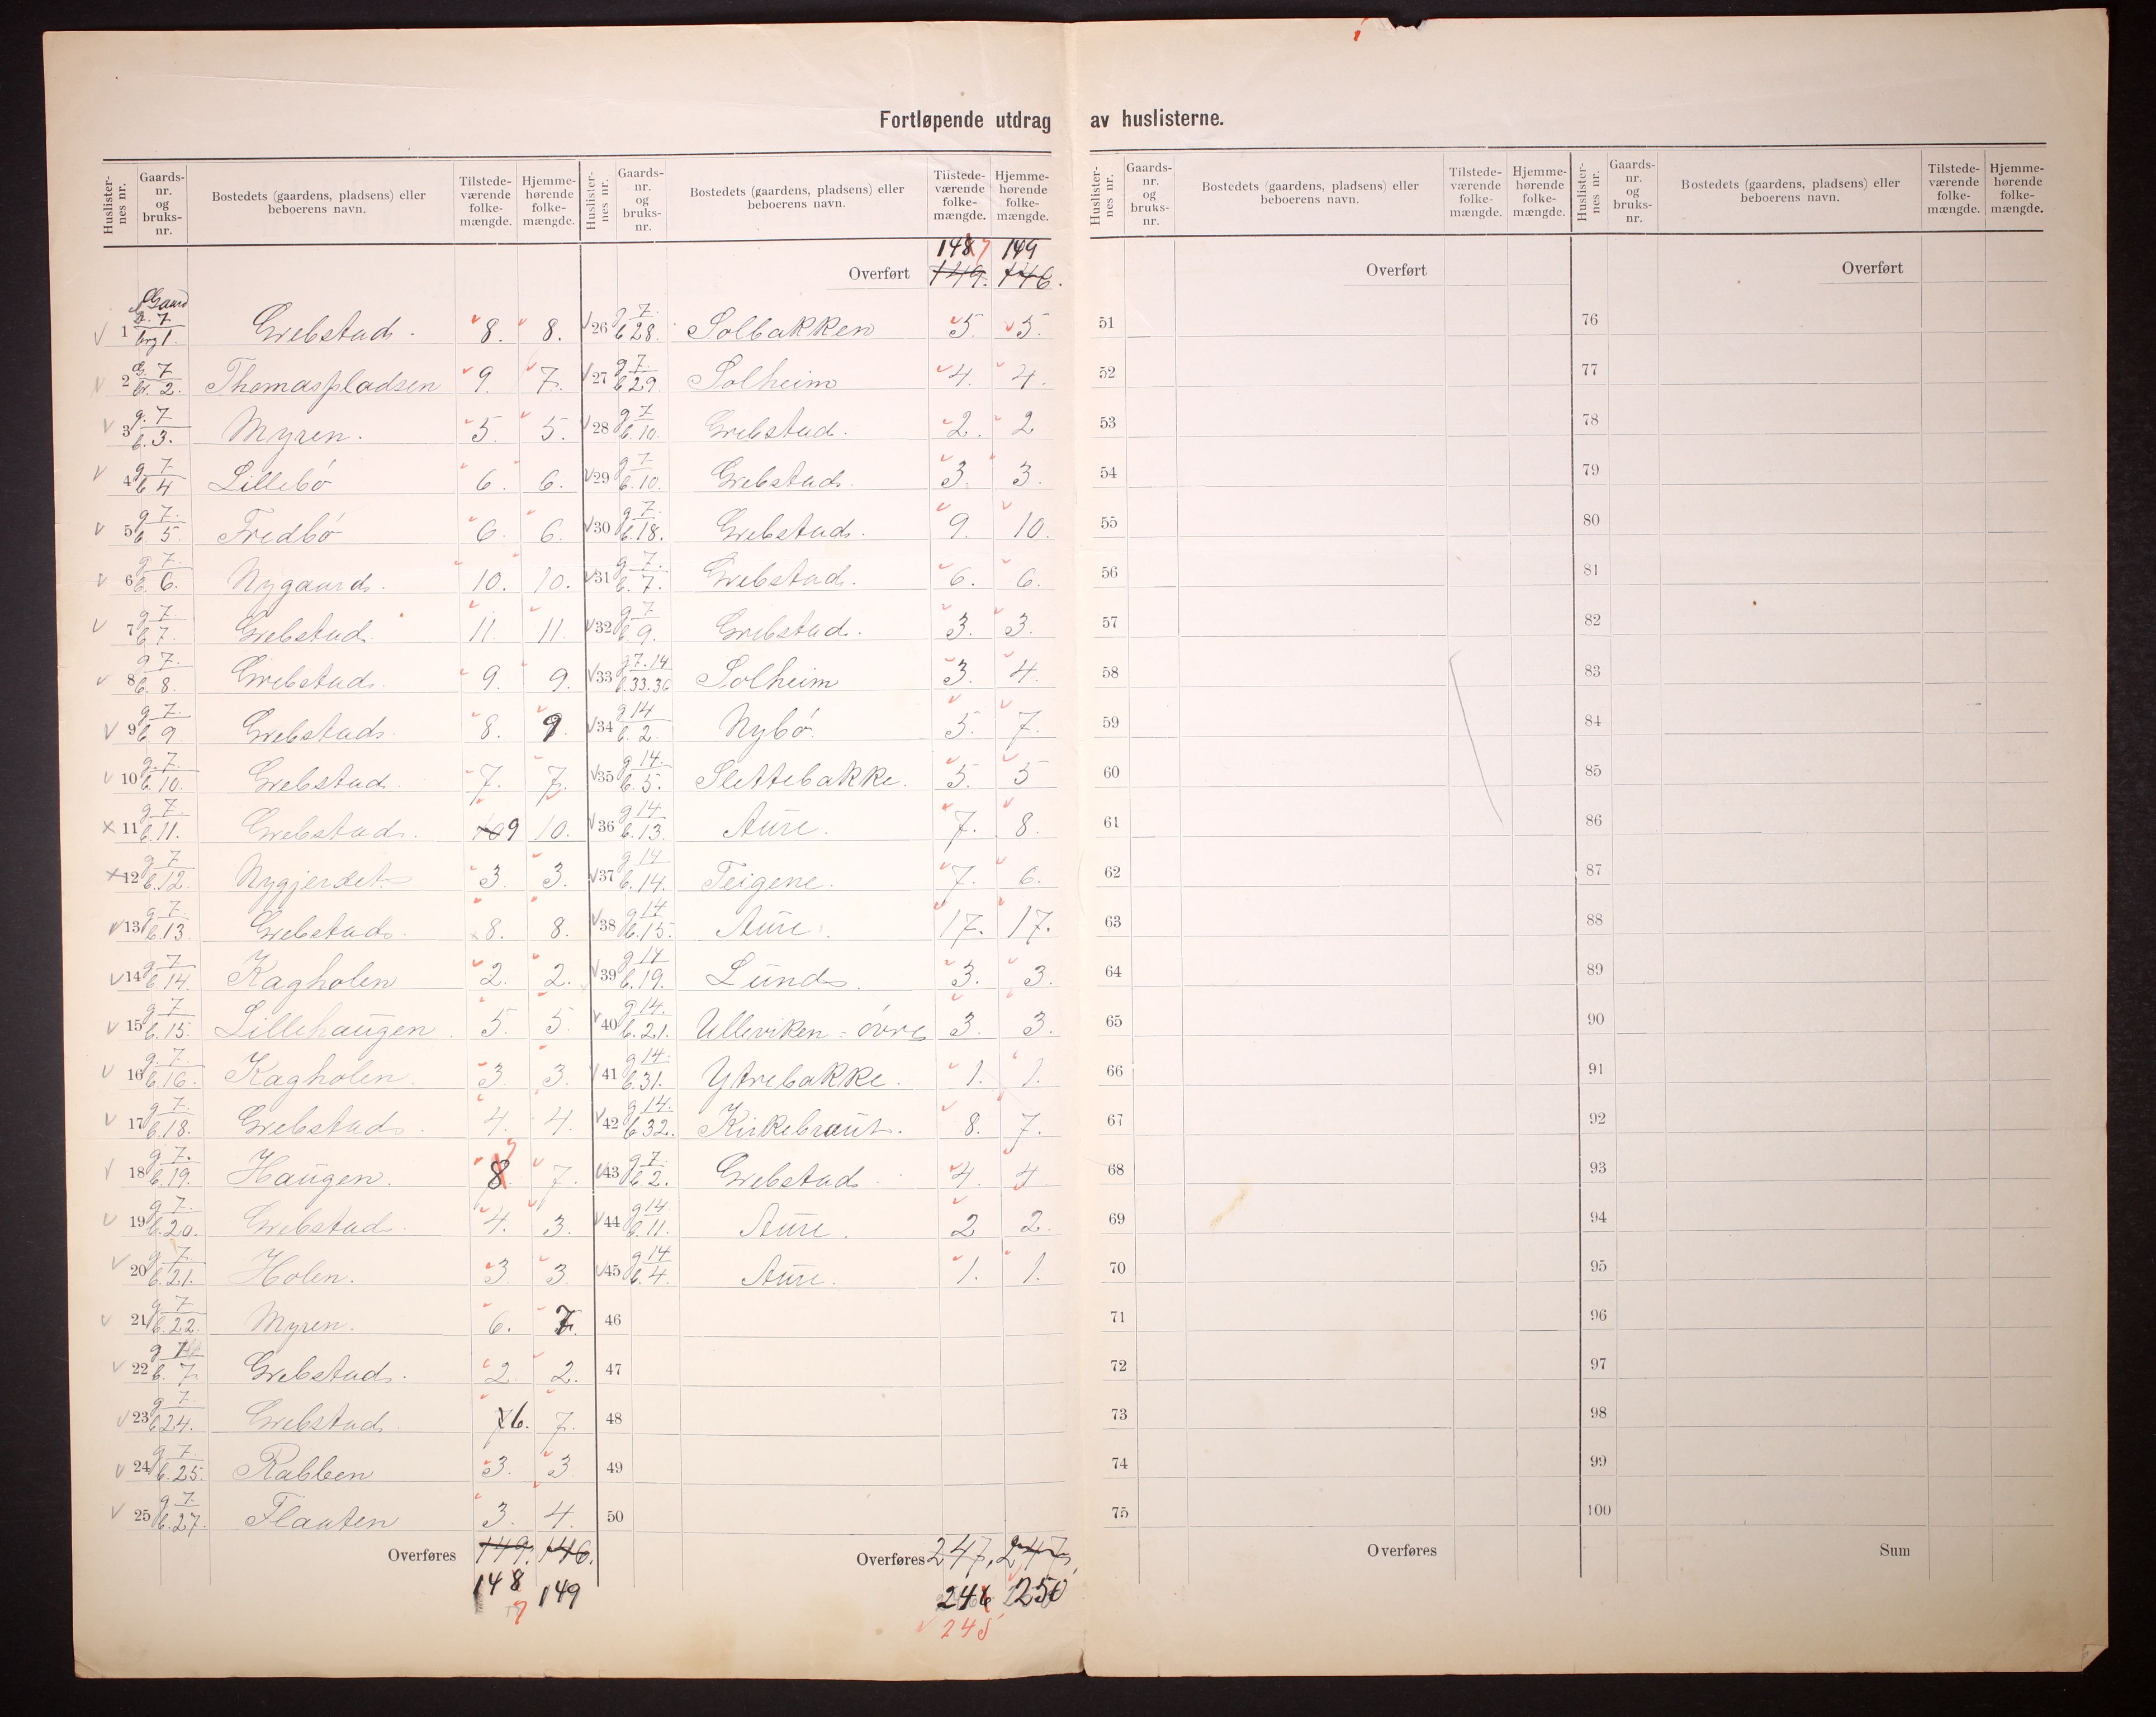 Fortløpende utdrag av huslisterne.
Huslister-nes nr. Gaards-nr. og bruks-nr. Bostedets (gaardens, pladsens) eller beboerens navn. Tilstede-værende folke-mængde. Hjemme-hørende folke-mængde.
1 G. 7 brg 1. Grebstad. 8. 8.
2 G. 7 br. 2. Thomaspladsen 9. 7.
3 g. 7 b. 3. Myren. 5. 5.
4 g 7 b 4 Lillebø 6. 6.
5 g 7. b. 5. Fredbø 6. 6.
6 g 7. b. 6. Nygaard. 10. 10.
7 g 7. b 7. Grebstad 11. 11.
8 g 7. b. 8. Grebstad. 9. 9.
9 g 7. b. 9 Grebstad. 8. 9.
10 g. 7. b. 10. Grebstad 7. 7.
11 g 7 b. 11. Grebstad. 10 9 10.
12 g 7 b. 12. Nygjerdet 3. 3.
13 g 7. b. 13 Grebstad. 8. 8.
14 g 7 b 14. Kagholen 2. 2.
15 g 7 b. 15. Lillehaugen. 5. 5.
16 g. 7. b. 16. Kagholen. 3. 3.
17 g 7. b. 18. Grebstad. 4. 4.
18 g 7. b. 19. Haugen. 8 7 7.
19 g 7. b. 20. Grebstad. 4. 3.
20 g 7. b. 21. Holen. 3. 3
21 g 7 b. 22. Myren. 6. 7.
22 b. 7 Grebstad. 2 2.
23 g 7. b 24. Grebstad. 7 6. 7.
24 g 7. b. 25. Rabben 3. 3
25 g 7. b. 27. Flauten 3. 4.
Overføres 149. 146.
148 149
7
Huslister-nes nr. Gaards-nr. og bruks-nr. Bostedets (gaardens, pladsens) eller beboerens navn. Tilstede-værende folke-mængde. Hjemme-hørende folke-mængde.
148 7 149
Overført 149. 146.
26 g 7. b 28. Solbakken 5. 5.
27 g 7. b 29. Solheim 4. 4.
28 g 7 b. 10. Grebstad. 2. 2
29 g 7 b. 10. Grebstad. 3. 3.
30 g 7. b. 18. Grebstad. 9. 10.
31 g 7. b. 7. Grebstad. 6. 6.
32 g 7 b. 9. Grebstad. 3. 3.
33 g 7. 14 b. 33. 36 Solheim 3. 4.
34 g 14 b. 2. Nybø. 5. 7.
35 g 14. b. 5. Slettebakke. 5. 5
36 g 14 b. 13. Aure. 7. 8.
37 g 14 b. 14. Teigene. 7. 6.
38 g 14 b. 15. Aure. 17. 17.
39 g 14 b. 19. Lund. 3. 3.
40 g 14. b. 21. Ulleviken - øvre 3. 3.
41 g 14. b. 31. Ytrebakke. 1. 1.
42 g 14. b 32. Kirkebraut. 8. 7.
43 g 7. b 2. Grebstad 4. 4
44 g 14. b. 11. Aure. 2 2.
45 g 14 b. 4. Aure. 1. 1.
46
47
48
49
50
Overføres 247, 247,
246 250
245
Huslister-nes nr. Gaards-nr. og bruks-nr. Bostedets (gaardens, pladsens) eller beboerens navn. Tilstede-værende folke-mængde. Hjemme-hørende folke-mængde.
Overført
51
52
53
54
55
56
57
58
59
60
61
62
63
64
65
66
67
68
69
70
71
72
73
74
75
Overføres
Huslister-nes nr. Gaards-nr. og bruks-nr. Bostedets (gaardens, pladsens) eller beboerens navn. Tilstede-værende folke-mængde. Hjemme-hørende folke-mængde.
Overført
76
77
78
79
80
81
82
83
84
85
86
87
88
89
90
91
92
93
94
95
96
97
98
99
100
Sum